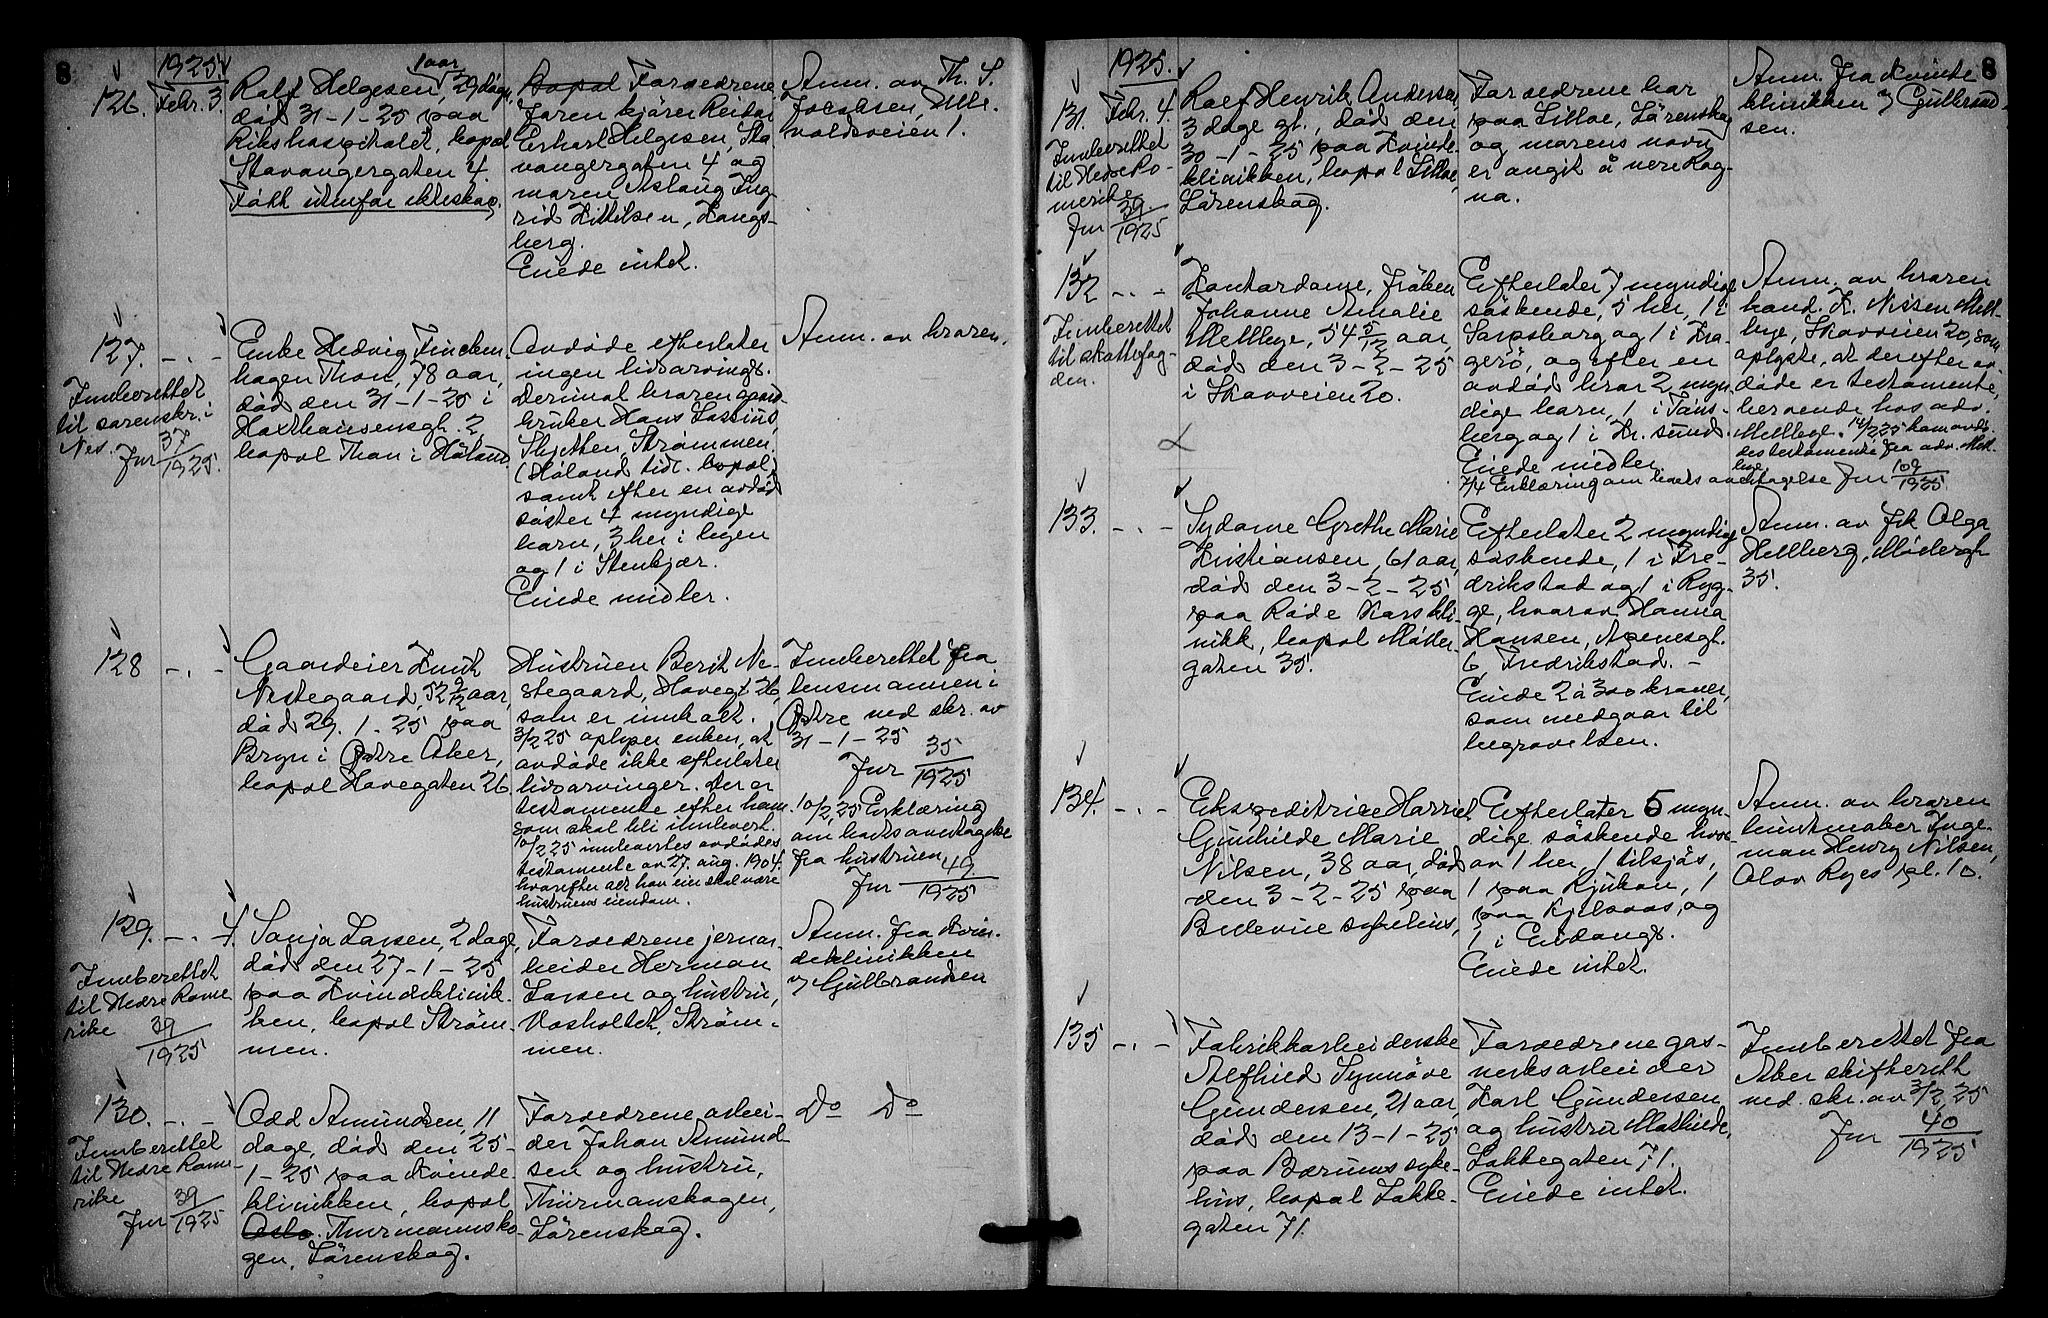 8
1925.
126. Febr. 3.
Ralf Helgesen, 1 aar 29 dage,
død 31-1-25 paa
Rikshospitalet, bopæl
Stavangergaten 4.
Født utenfor ekteskap.
Bopæl Forældrene
Faren kjører Reidar
Erhart Helgesen, Sta-
vangergaten 4 og
moren Aslaug Ing-
rid Kittilsen, Kongs-
berg.
Eiede intet.
Anm. av Th. S.
Jacobsen, Ulle-
voldsveien 1.
127. -.-
Indberettet
til sorenskr. i
Nes.
Jnr 37/1925.
Enke Hedvig Finchen-
hagen Thon, 78 aar,
død den 31-1-25 i
Haxthausensgt. 2
bopæl Thon i Høland.
Avdøde efterlater
ingen livsarving.
Derimot broren gaard-
bruker Hans Lassius,
Skjetten, Strømmen.
(Høland tidl. bopæl)
samt efter en avdød
søster 4 myndige
barn, 3 her i byen
og 1 i Stenkjær.
Eiede midler.
Anm. av broren.
128 -.-
Gaardeier Knut
Nestegaard, 52 9/12 aar,
død 29.1-25 paa
Bryn i Østre Aker,
bopæl Hovegaten 26
Hustruen Berit Ne-
stegaard, Hovegt 26,
som er innkalt.
3/2 25 oplyser enken, at
avdøde ikke efterlater
livsarvinger. Der er
testamente efter ham
som skal bli innlevert.
10/2 25 innleveres avdødes
testamente av 27. aug. 1904.
hvorefter alt han eier skal være
hustruens eiendom.
Innberettet fra
lensmannen i
Østre ved skr. av
31-1-25
Jnr 35/1925
10/2 25 Erklæring
om boets overtagelse
fra hustruen
Jnr 49/1925
129. -.- 4.
Innberettet
til Nedre Rome-
rike 39/1925
Sonja Larsen, 2 dage,
død den 27-1-25
paa Kvindeklinik-
ken, bopæl Strøm-
men.
Forældrene jernar-
beider Herman
Larsen og hustru,
Vosholtet, Strøm-
men.
Anm. fra Kvin-
deklinikken
v Gulbrandsen
130. -.-
Innberettet
til Nedre Rome-
rike
Jnr 39/1925
Odd Amundsen, 11
dage, død den 25-
1-25 paa Kvinde-
klinikken, bopæl
Oslo. Thurmannsko-
gen, Lørenskog.
Forældrene arbei-
der Johan Amund-
sen og hustru,
Thurmanskogen,
Lørenskog.
Do Do
8
1925.
131. Febr. 4.
Innberettet
til Nedre Ro-
merike
Jnr 39/1925
Rolf Henrik Andersen,
3 dage gl., død den
30-1-25 paa Kvinde-
klinikken, bopæl Lilloe,
Lørenskog.
Forældrene bor
paa Lilloe, Lørenskog
og morens navn
er angit å være Rag-
na.
Anm. fra Kvinde-
klinikken v Gulbrand-
sen.
132 -.-
Innberettet
til skattefog-
den.
Kontordame, frøken
Johanne Amalie
Mellbye, 54 5/12 aar,
død den 3-2-25
i Skovveien 20.
Efterlater 7 myndige
søskende, 5 her, 1 i
Sarpsborg og 1 i Kra-
gerø, og efter en
avdød bror 2 myn-
dige barn, 1 i Tøns-
berg og 1 i Kr.sund.
Eiede midler.
7/4 Erklæring om boets overtagelse Jnr 109/1925
Anm. av broren
hand. K. Nissen Mell-
bye, Skovveien 20, som
oplyste, at der efter av-
døde er testamente,
beroende hos adv.
Mellbye. 14/2 25 kom avdø-
des testamente fra adv. Mell-
bye.
133. -.-
Sydame Grethe Marie
Kristiansen, 61 aar,
død den 3-2-25
paa Røde Kors kli-
nikk, bopæl Møller-
gaten 35.
Efterlater 2 myndige
søskende, 1 i Fre-
drikstad og 1 i Ryg-
ge, hvorav Hanna
Hansen, Agenesgt.
6, Fredrikstad. -
Eiede 2 à 300 kroner,
som medgaar til
begravelsen.
Anm. av frk Olga
Hellberg, Møllergt
35.
134. -.-
Ekspeditrice Harriet
Gunhilde Marie
Nilsen, 38 aar, død
den 3-2-25 paa
Bedevue sykehus,
Efterlater 5 myn-
dige søskende hvor-
av 1 her, 1 tilsjøs,
1 paa Rjukan, 1
paa Kjelsaas, og
1 i Eidanger.
Eiede intet.
Anm. av broren
buntmaker Inge-
man Henry Nilsen,
Olav Ryes pl. 10.
135 -.-
Fabrikkarbeiderske
Alfhild Synnøve
Gundersen, 21 aar,
død den 13-1-25
paa Bærums syke-
hus, bopæl Lakke-
gaten 71.
Forældrene gas-
verksarbeider
Karl Gundersen
og hustru Mathilde,
Lakkegaten 71.
Eiede intet.
Innberettet fra
Aker skifterett
ved skr. av 3/2 25
Jnr 40/1925